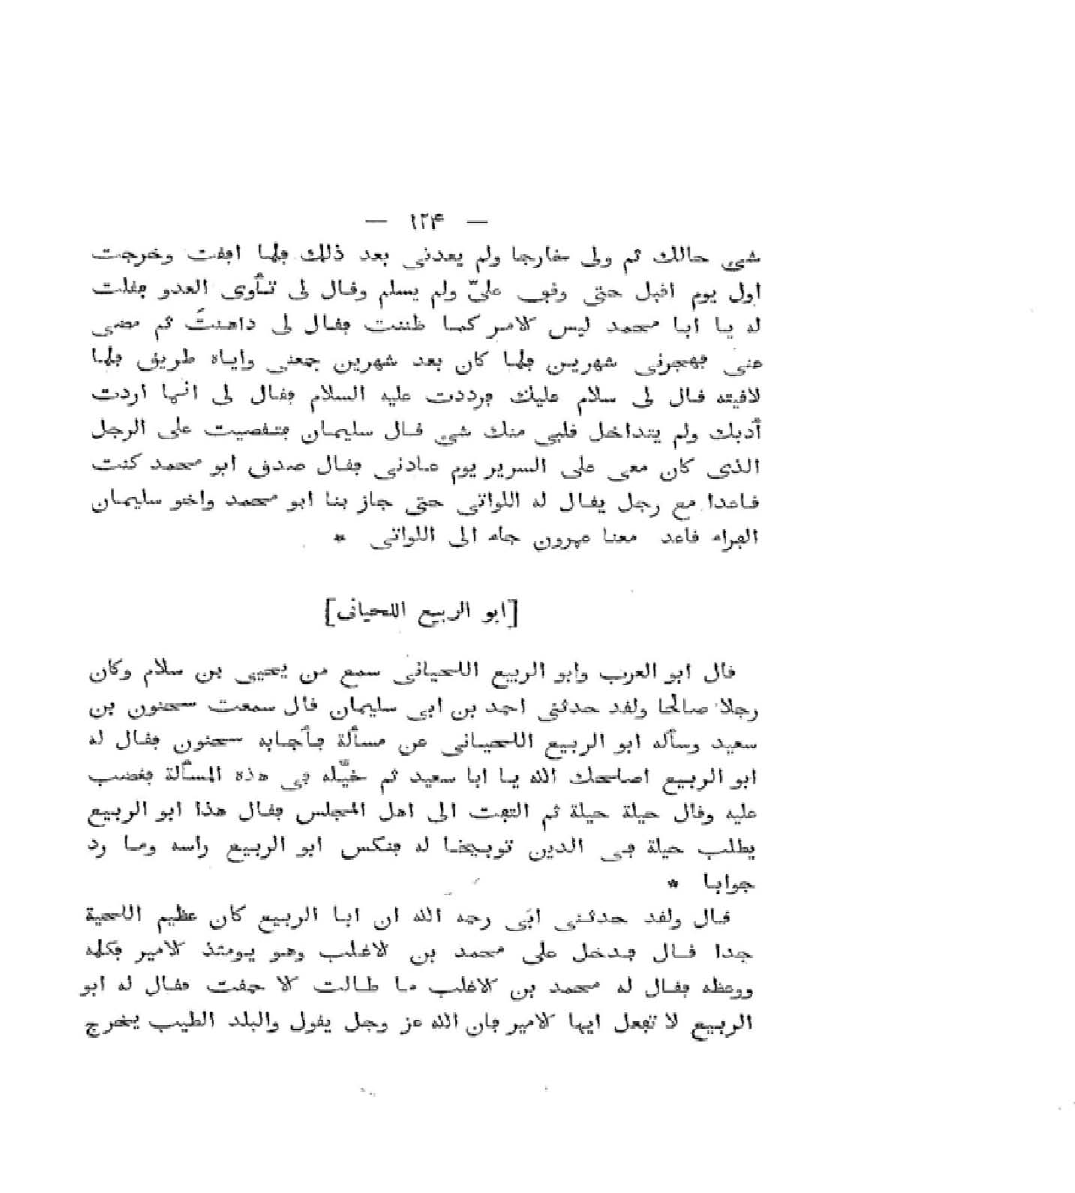 — ١٢٤ —
شىء حالك ثم ولى خارجا ولم يعدنى بعد ذلك فلما افقت وخرجت
اول يوم اقبل حتى وقف علىّ ولم يسلم وقال لى تـأوى العدو فقلت
له يا ابا محمد ليس الامر كما ظننت فقال لى داهنتَ ثم مضى
عنى فهجرنى شهرين فلما كان بعد شهرين جمعنى واياه طريق فلما
لاقيته قال لى سلام عليك فرددت عليه السلام فقال لى انما اردت
أدبك ولم يتداخل قلبى منك شىء قال سليمان فتقصيت على الرجل
الذى كان معى على السرير يوم عادنى فقال صدق ابو محمد كنت
قاعدا مع رجل يقال له اللواتى حتى جاز بنا ابو محمد واخو سليمان
الفراء قاعد معنا عمرون جاء الى اللواتى *
[ابو الربيع اللحيانى]
قال ابو العرب وابو الربيع اللحيانى سمع من يحيى بن سلام وكان
رجلا صالحا ولقد حدثنى احمد بن ابى سليمان قال سمعت سحنون بن
سعيد وسأله ابو الربيع اللحيانى عن مسألة فأجابه سحنون فقال له
ابو الربيع اصلحك الله يا ابا سعيد ثم خيَّله فى هذه المسألة فغضب
عليه وقال حيلة حيلة ثم التفت الى اهل المجلس فقال هذا ابو الربيع
يطلب حيلة فى الدين توبيخا له فنكس ابو الربيع راسه وما رد
جوابا *
قال ولقد حدثنى ابى رحمه الله ان ابا الربيع كان عظيم اللحية
جدا قال فدخل على محمد بن الاغلب وهو يومئذ الامير فكلمه
ووعظه فقال له محمد بن الاغلب ما طالت الا جفت فقال له ابو
الربيع لا تفعل ايها الامير فان الله عز وجل يقول والبلد الطيب يخرج